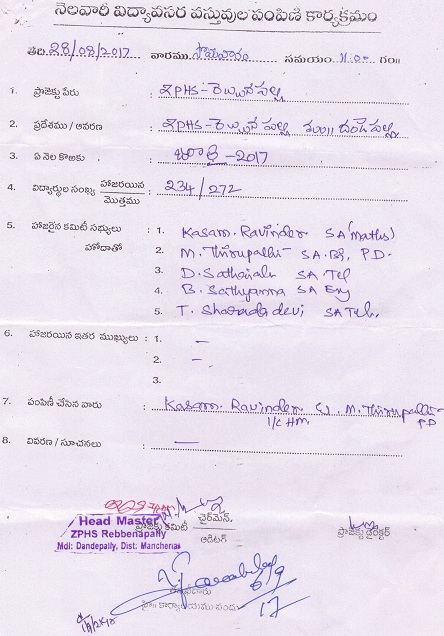 నెలవారీ విద్యావసర వస్తువుల పంపిణి కార్యక్రమం
తేది. 28/08/2017 వారము సోమవారం సమయం. 11.00 గం॥
1. ప్రాజెక్టు పేరు : ZPHS - రెబ్బనేపల్లి
2. ప్రదేశము / ఆవరణ : ZPHS - రెబ్బనేపల్లి మం॥ దండేపల్లి
3. ఏ నెల కొఱకు : జూలై - 2017
4. విద్యార్థుల సంఖ్య హాజరయిన / మొత్తము : 234/272
5. హాజరైన కమిటీ సభ్యులు : 1. Kasam. Ravinder SA (Maths)
హోదాతో 2. M. Thirupathi SA. BS, P.D.
3. D. Sathaiah SA Tel
4. B. Sathyanna SA Eng
5. T. Sharada devi SA Tel.
6. హాజరయిన ఇతర ముఖ్యులు : 1. —
2. —
3.
7. పంపిణీ చేసిన వారు : Kasam. Ravinder & M. Thirupathi
I/C HM. PD
8. వివరణ / సూచనలు : —
ప్రాజెక్టు కమిటీ చైర్మెన్.
ఆడిటర్
ప్రాజెక్టు డైరెక్టర్
Head Master
ZPHS Rebbenapally
Mdl: Dandepally, Dist: Mancherial
6/9
17